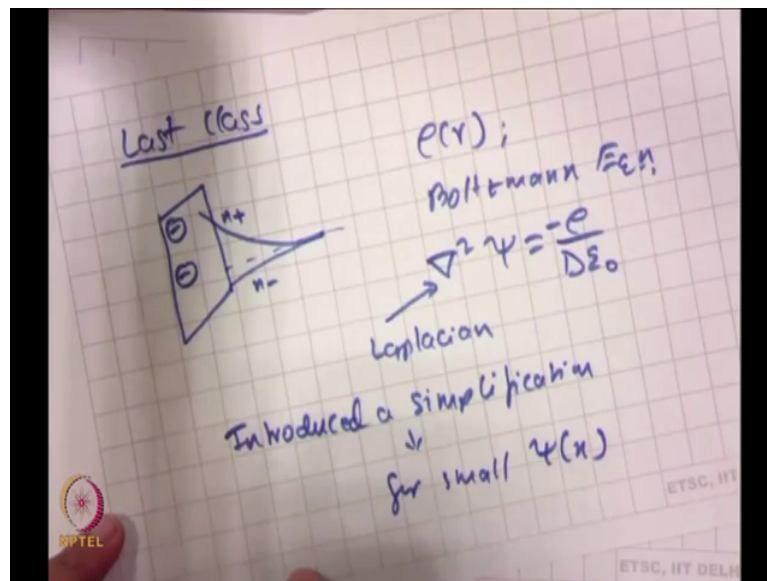 Last Class
ρ(r);
Boltzmann Eqn.
n+
⊖
⊖
n-
∇² ψ = -ρ / Dε₀
Laplacian
Introduced a simplification
↓
for small ψ(x)
NPTEL
ETSC, IIT
ETSC, IIT DELH